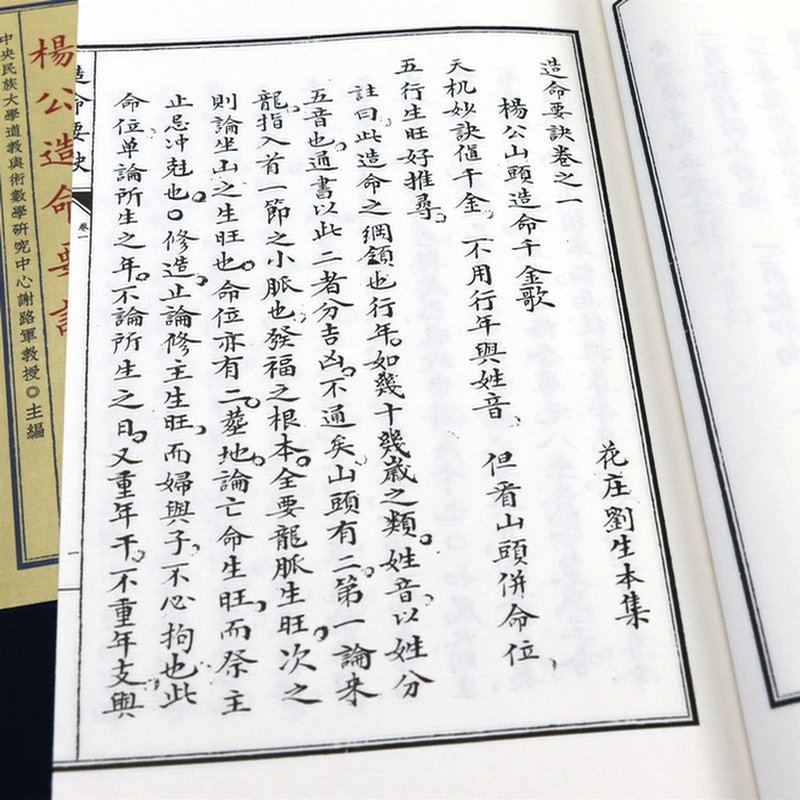 造命要訣卷之一
花庄劉生本集
楊公山頭造命千金歌
天机妙訣值千金。不用行年與姓音。但看山頭併命位、
五行生旺好推尋。
註曰此造命之綱領也行年。如幾十幾歲之類。姓音。以姓分
五音也。通書以此二者分吉凶。不通矣。山頭有二。第一論來
龍。指入首一節之小脈也。發福之根本。全要龍脈生旺。次之
則論坐山之生旺也。命位亦有二。墓地論亡命生旺。而祭主
止忌冲尅也。○修造。止論修主生旺。而婦與子。不必拘也。此
命位单論所生之年。不論所生之日。又重年干。不重年支。與
造命要訣
卷一
一
楊公造命要
中央民族大學道教與術數學研究中心謝路軍教授◎主編